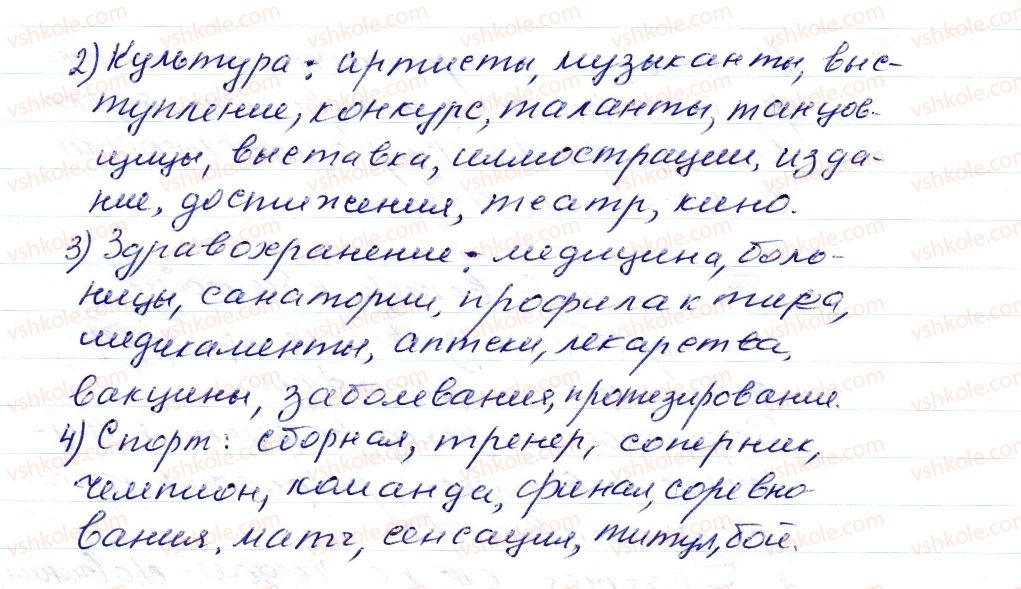 2) Культура: артисты, музыканты, выс-
тупление, конкурс, таланты, танцов-
щицы, выставка, иллюстрации, изда-
ние, достижения, театр, кино.
3) Здравохранение: медицина, боль-
ницы, санатории, профилактика,
медикаменты, аптеки, лекарства,
вакцины, заболевания, протезирование.
4) Спорт: сборная, тренер, соперник,
чемпион, команда, финал, соревно-
вания, матч, сенсация, титул, бой.